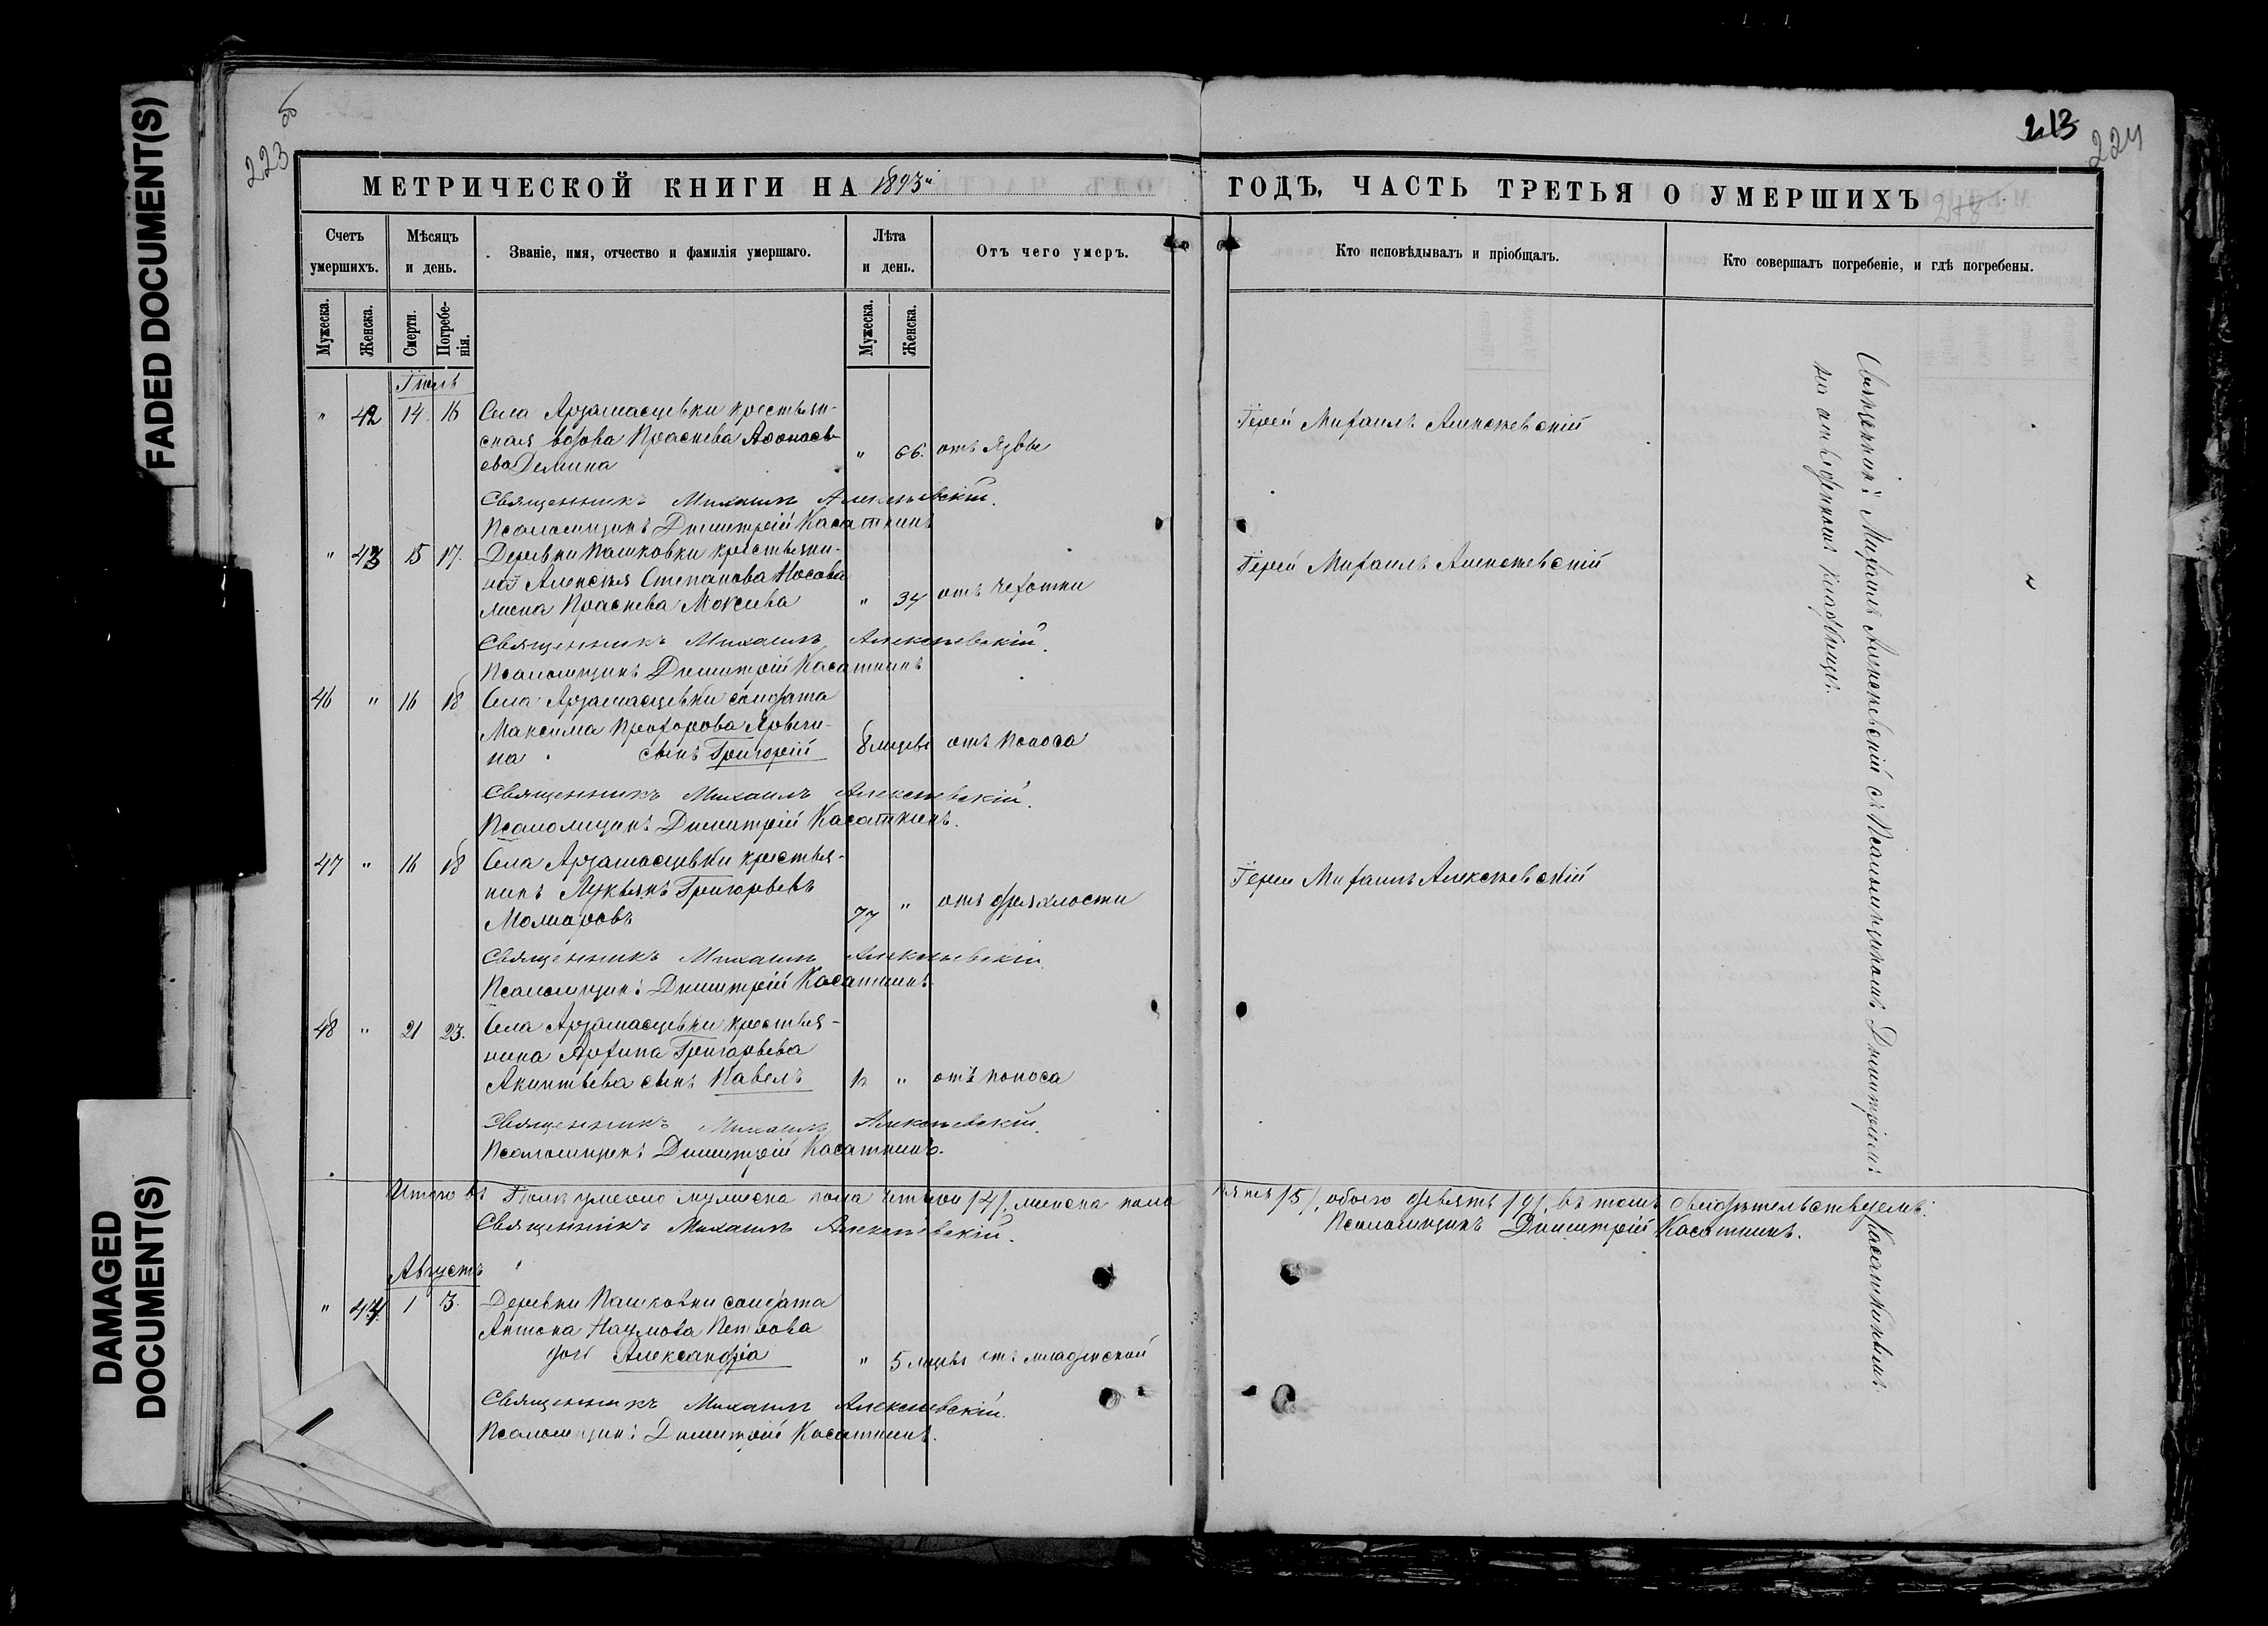 FADED DOCUMENT(S)
DAMAGED
DOCUMENT(S)
223 об
213
224
МЕТРИЧЕСКОЙ КНИГИ НА 1893й
ГОДЪ, ЧАСТЬ ТРЕТЬЯ О УМЕРШИХЪ
218
Счетъ умершихъ.
Мѣсяцъ и день.
Званіе, имя, отчество и фамилія умершаго.
Лѣта и день.
Отъ чего умеръ.
Кто исповѣдывалъ и пріобщалъ.
Кто совершалъ погребеніе, и гдѣ погребены.
Мужеска.
Женска.
Смерти.
Погребе-
нія.
Мужеска.
Женска.
Іюль
" 42 14 16 Села Арзамасцевки крестьян-
ская вдова Праскева Афонась-
ева Демина " 66. отъ язвы
Іерей Михаилъ Алексѣевскій
Священникъ Михаилъ Алексѣевскій.
Псаломщикъ Димитрій Касаткинъ
" 43 15 17. Деревни Пашковки крестьяни-
на Алексѣя Степанова Носова
жена Праскева Мокѣева " 34 отъ чахотки
Іерей Михаилъ Алексѣевскій
Священникъ Михаилъ Алексѣевскій.
Псаломщикъ Димитрій Касаткинъ
46 " 16 18 Села Арзамасцевки солдата
Максима Прохорова Яровки-
на сынъ Григорій 8 мѣцевъ отъ поноса
Священникъ Михаилъ Алексѣевскій.
Псаломщикъ Димитрій Касаткинъ.
47 " 16 18 Села Арзамасцевки крестья-
нинъ Лукьянъ Григорьевъ
77 " отъ дряхлости
Іерей Михаилъ Алексѣевскій
Священникъ Михаилъ Алексѣевскій.
Псаломщикъ Димитрій Касаткинъ
48 " 21 23. Села Арзамасцевки крестья-
нина Архипа Григорьева
Акинтьева сынъ Павелъ " отъ поноса
Священникъ Михаилъ Алексѣевскій.
Псаломщикъ Димитрій Касаткинъ.
Итого въ Іюлѣ умерло мужеска пола четыре /4/, женска пола пять /5/, обоего девять /9/, въ томъ свидѣтельствуемъ:
Священникъ Михаилъ Алексѣевскій.
Псаломщикъ Димитрій Касаткинъ.
Августъ
" 44 1 3. Деревни Пашковки солдата
Антона Наумова Петрова
дочь Александра " 5 мѣцевъ отъ младенской
Священникъ Михаилъ Алексѣевскій.
Псаломщикъ Димитрій Касаткинъ.
Священникъ Михаилъ Алексѣевскій съ Псаломщикомъ Димитріемъ Касаткинымъ
на отведенномъ кладбищѣ.